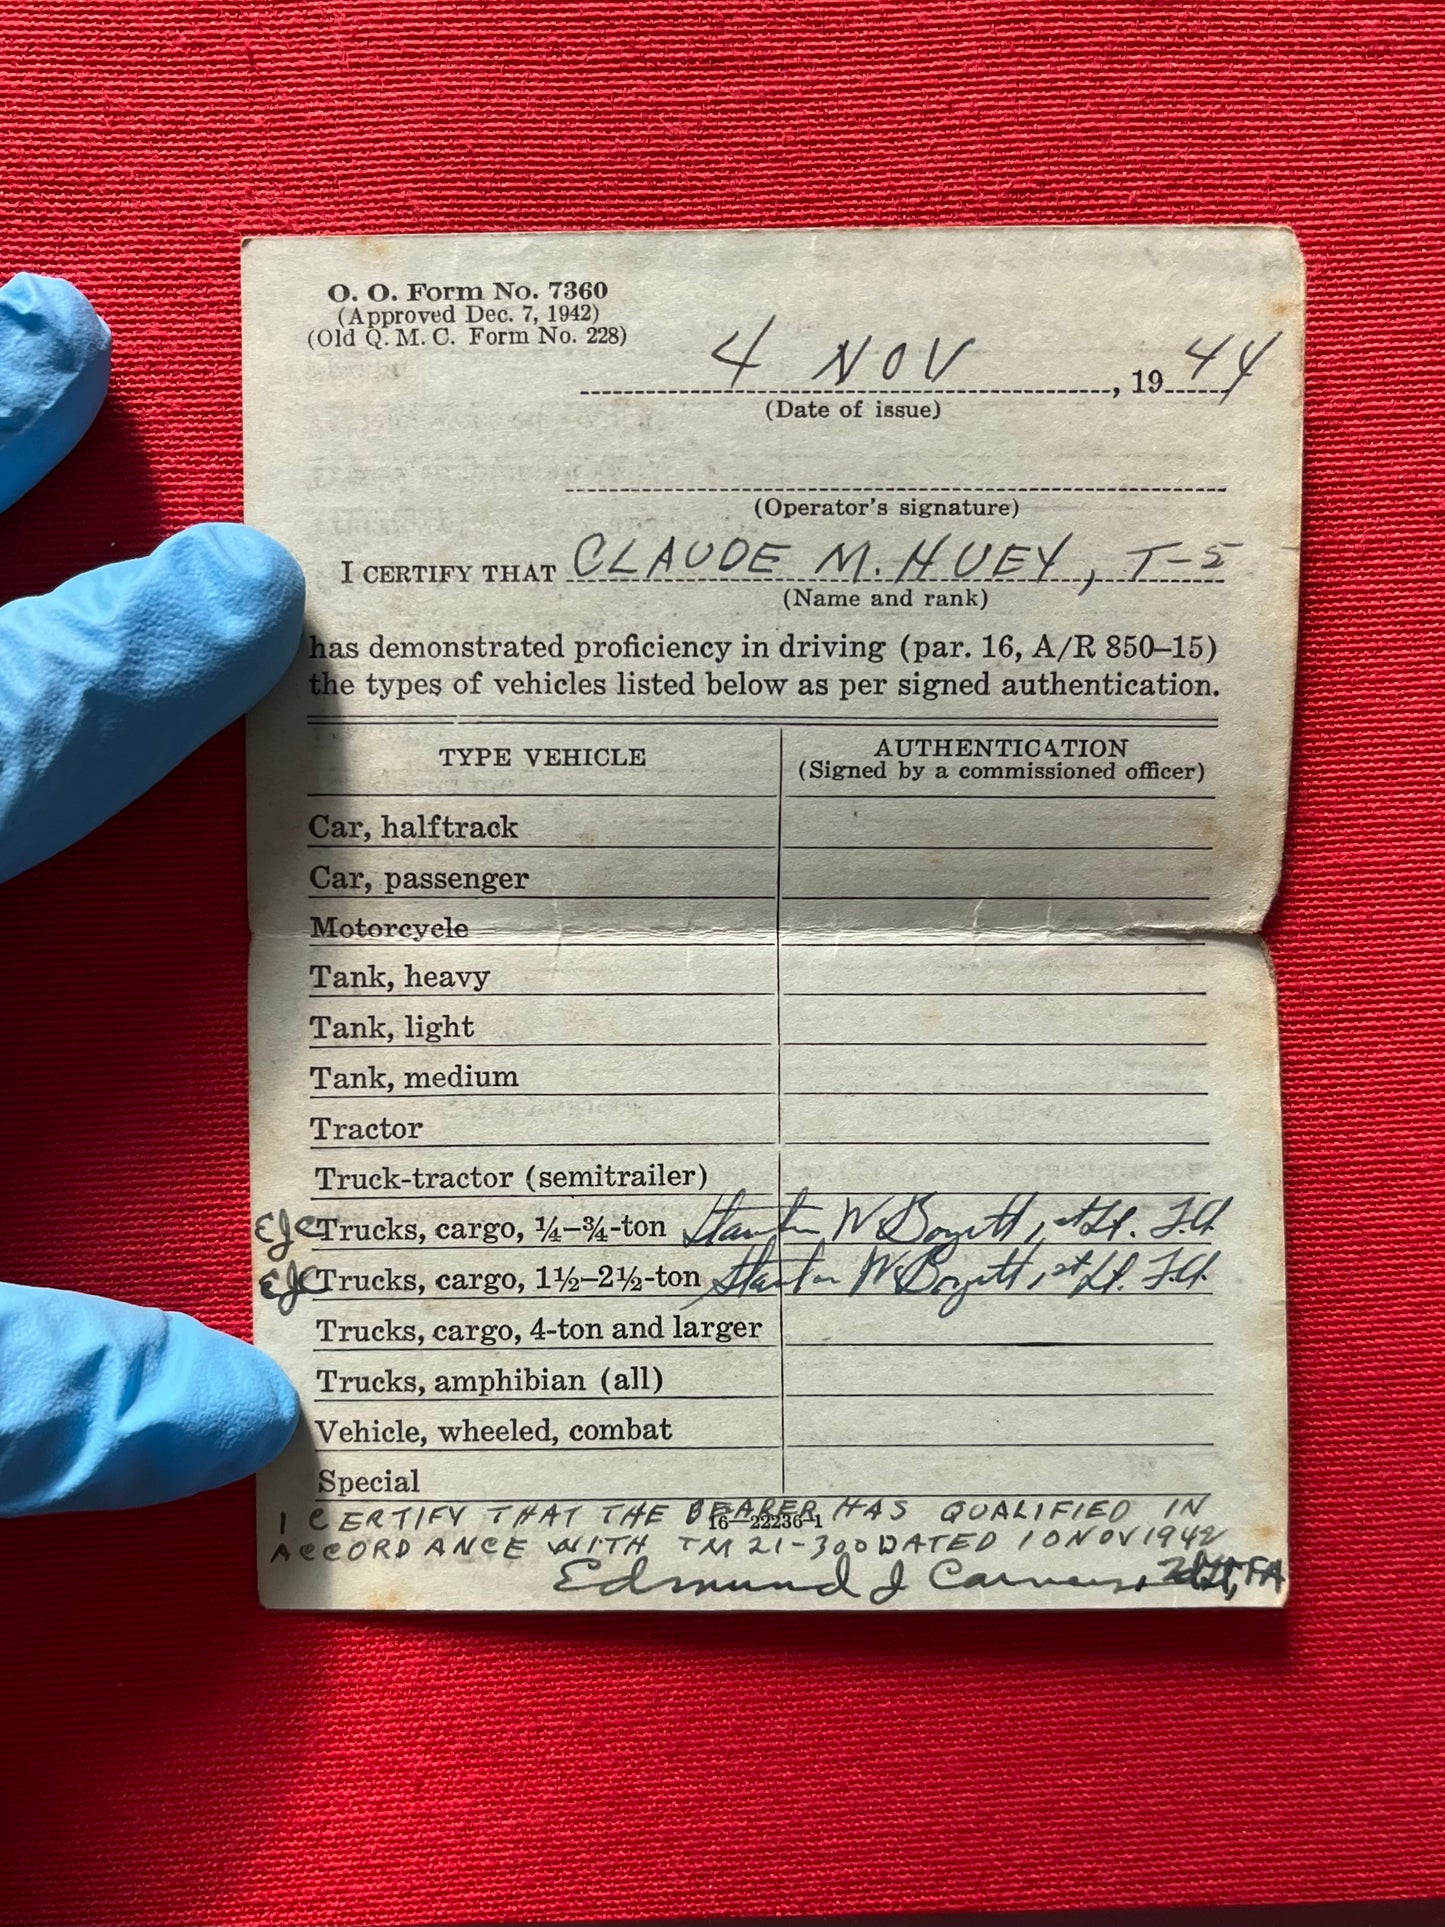 O. O. Form No. 7360
(Approved Dec. 7, 1942)
(Old Q. M. C. Form No. 228)
4 NOV, 1944
(Date of issue)
(Operator's signature)
I CERTIFY THAT CLAUDE M. HUEY, T-5
(Name and rank)
has demonstrated proficiency in driving (par. 16, A/R 850–15)
the types of vehicles listed below as per signed authentication.
TYPE VEHICLE
AUTHENTICATION
(Signed by a commissioned officer)
Car, halftrack
Car, passenger
Motorcycle
Tank, heavy
Tank, light
Tank, medium
Tractor
Truck-tractor (semitrailer)
EJC Trucks, cargo, ¼–¾-ton Stanton W Bogett, 1st Lt. F.A.
EJC Trucks, cargo, 1½–2½-ton Stanton W Bogett, 1st Lt. F.A.
Trucks, cargo, 4-ton and larger
Trucks, amphibian (all)
Vehicle, wheeled, combat
Special
I CERTIFY THAT THE BEARER HAS QUALIFIED IN
16—22236-1
ACCORDANCE WITH TM 21-300 DATED 10 NOV 1942
Edmund J 2d Lt, FA